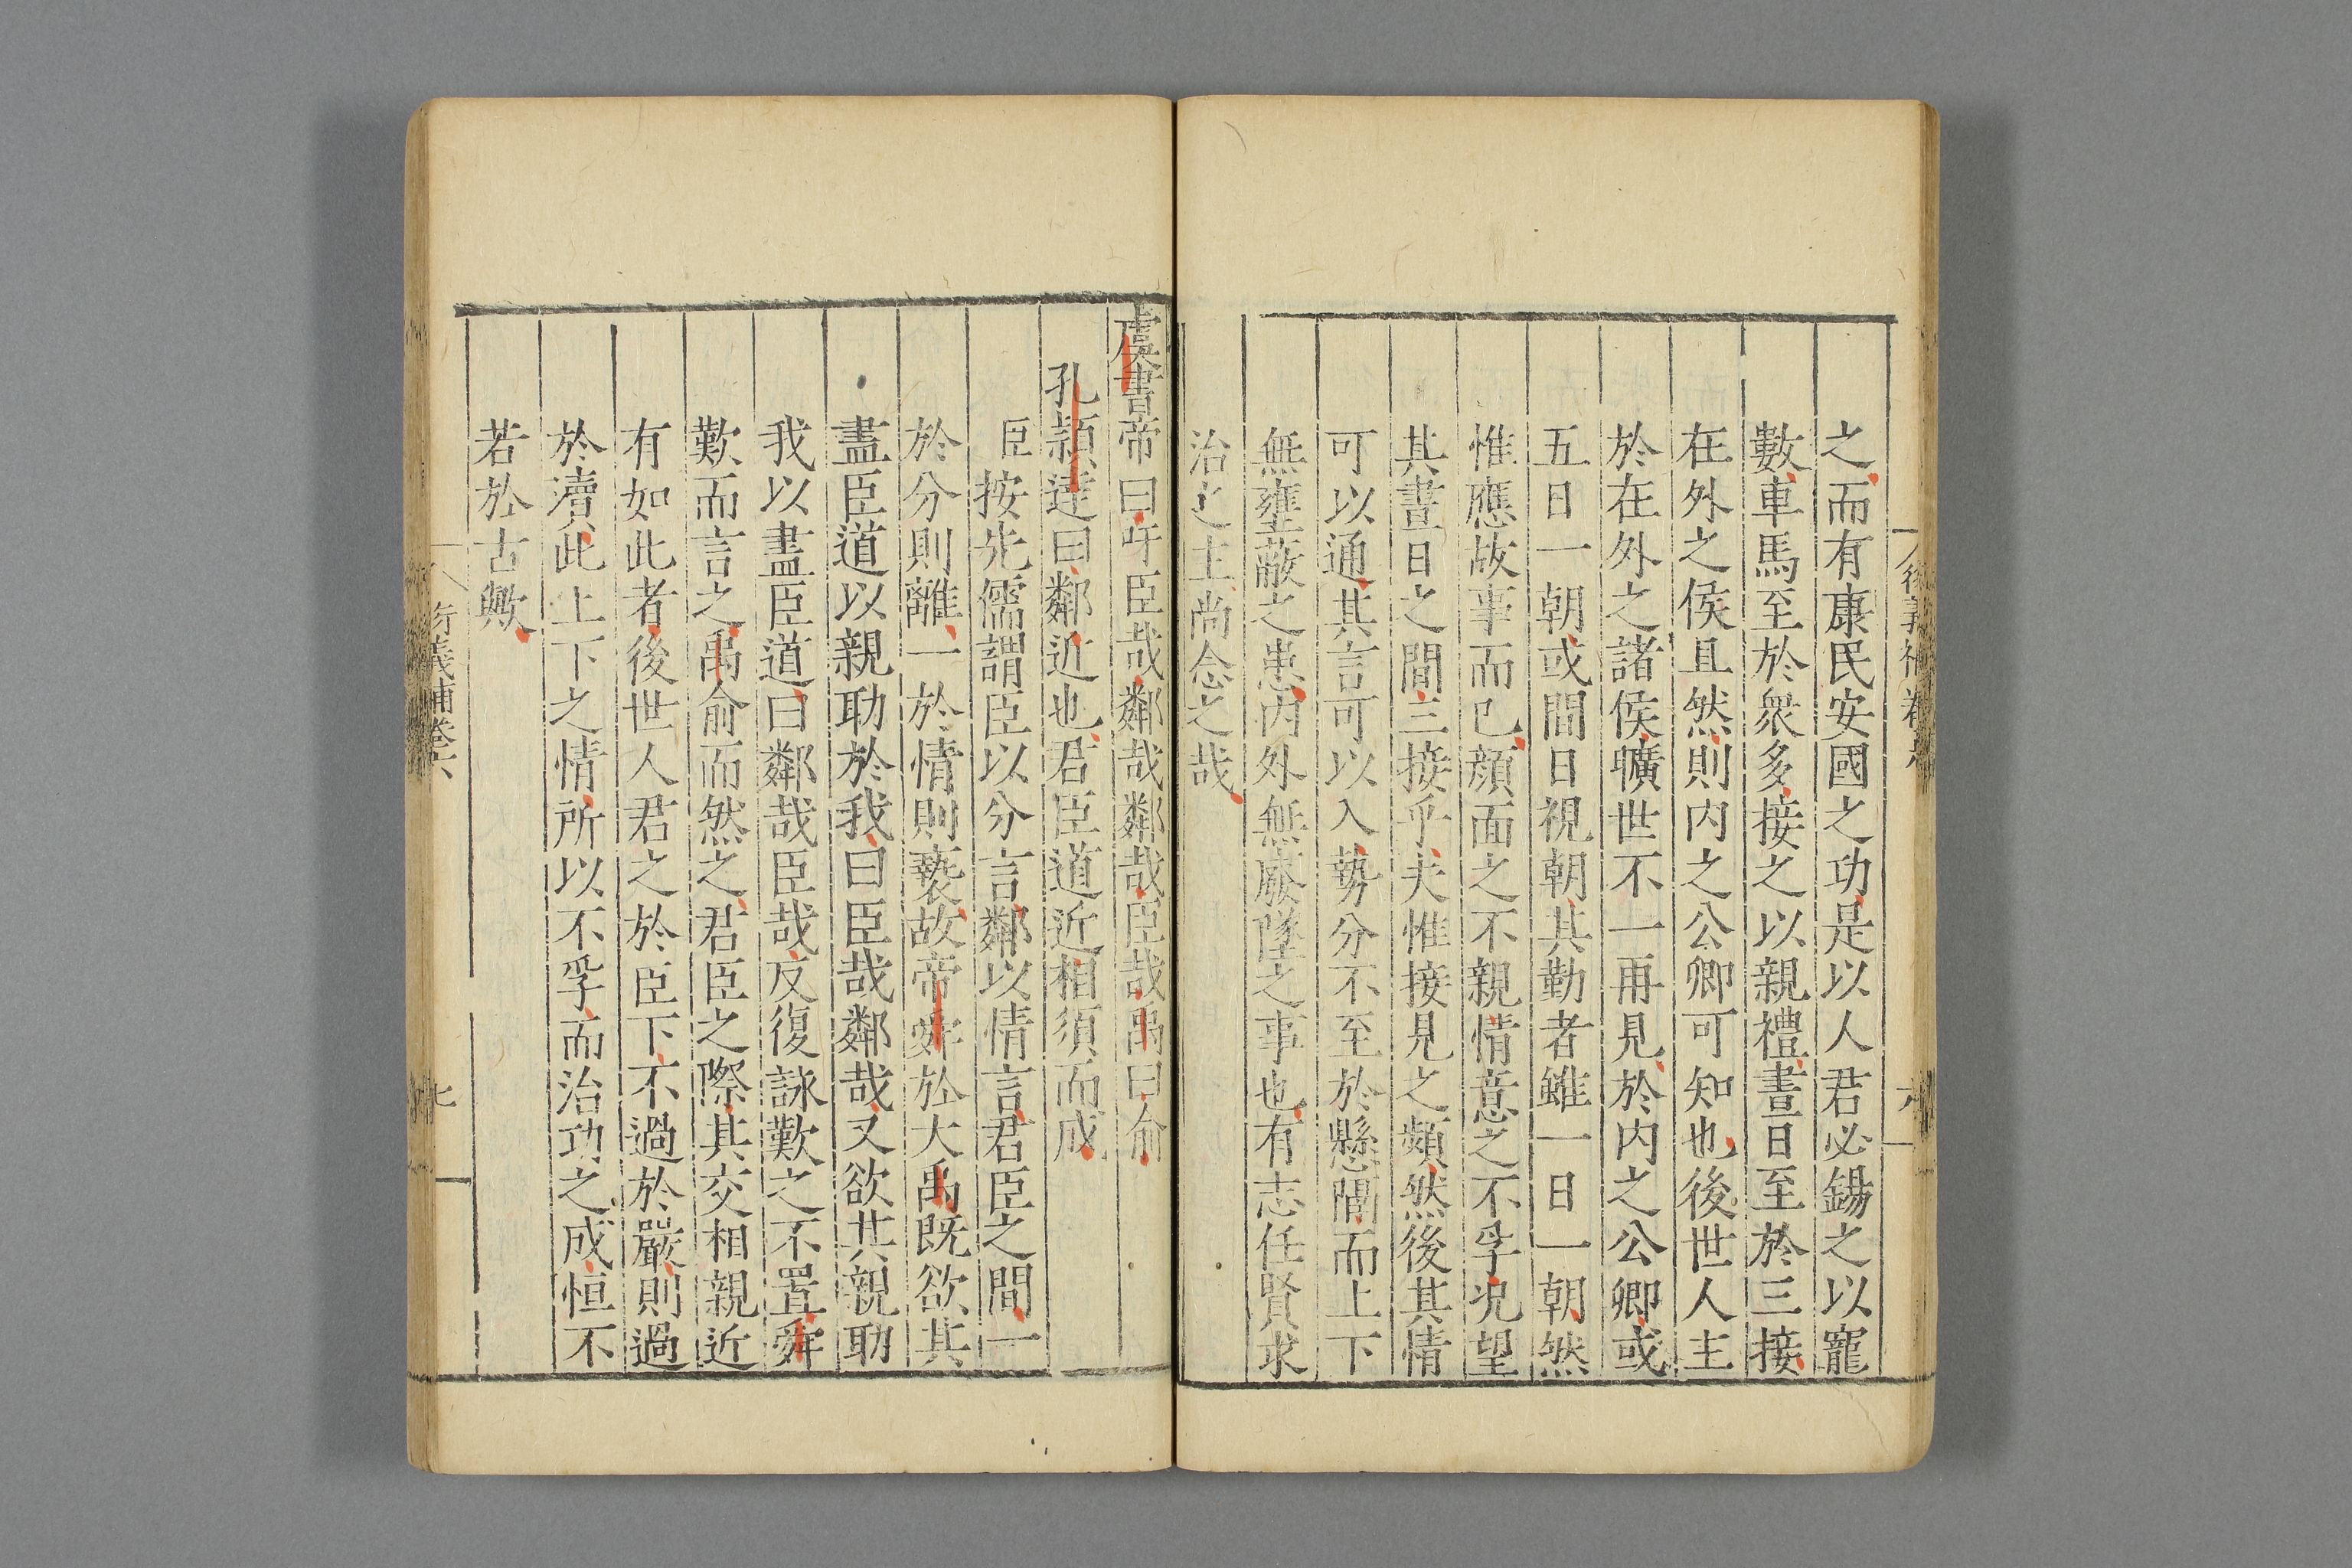 之而有康民安國之功是以人君必錫之以寵
數車馬至於衆多接之以親禮晝日至於三接
在外之侯且然則内之公卿可知也後世人主
於在外之諸侯曠世不一再見於内之公卿或
五日一朝或間日視朝其勤者雖一日一朝然
惟應故事而已顔面之不親情意之不孚况望
其晝日之間三接乎夫惟接見之頻然後其情
可以通其言可以入勢分不至於懸隔而上下
無壅蔽之患内外無廢墜之事也有志任賢求
治之主尚念之哉
虞書帝曰吁臣哉鄰哉鄰哉臣哉禹曰俞
孔頴達曰鄰近也君臣道近相須而成
臣按先儒謂臣以分言鄰以情言君臣之間一
於分則離一於情則褻故帝舜於大禹既欲其
盡臣道以親助於我曰臣哉鄰哉又欲其親助
我以盡臣道曰鄰哉臣哉反復詠歎之不置舜
歎而言之禹俞而然之君臣之際其交相親近
有如此者後世人君之於臣下不過於嚴則過
於瀆此上下之情所以不孚而治功之成恒不
若於古歟
衍義補卷六
七